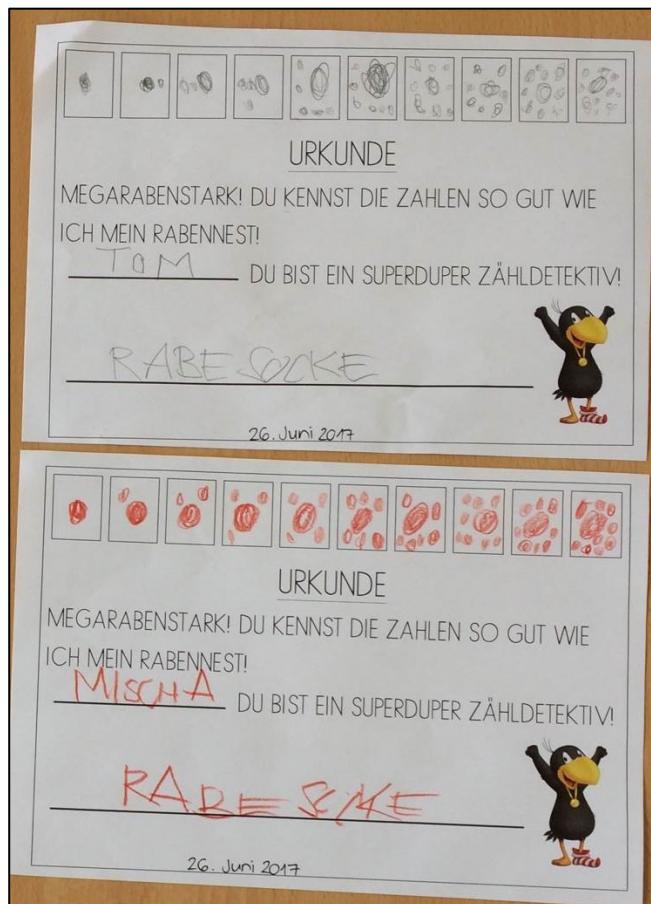 URKUNDE
MEGARABENSTARK! DU KENNST DIE ZAHLEN SO GUT WIE
ICH MEIN RABENNEST!
TOM DU BIST EIN SUPERDUPER ZÄHLDETEKTIV!
RABE SOCKE
26. Juni 2017
URKUNDE
MEGARABENSTARK! DU KENNST DIE ZAHLEN SO GUT WIE
ICH MEIN RABENNEST!
MISCHA DU BIST EIN SUPERDUPER ZÄHLDETEKTIV!
RABE SOCKE
26. Juni 2017